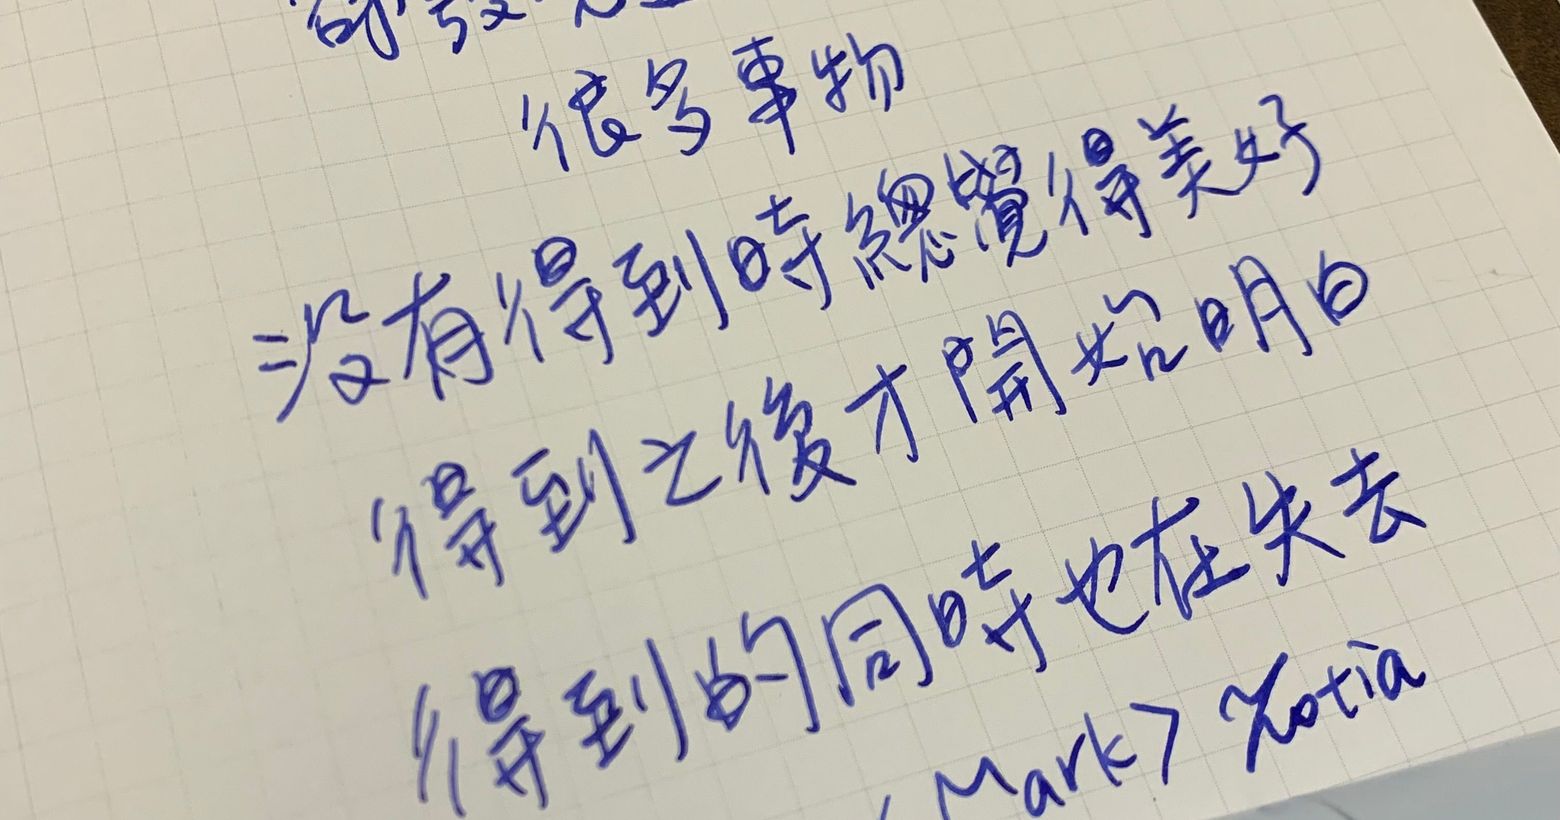 很多事物
沒有得到時總覺得美好
得到之後才開始明白
得到的同時也在失去
<Mark>